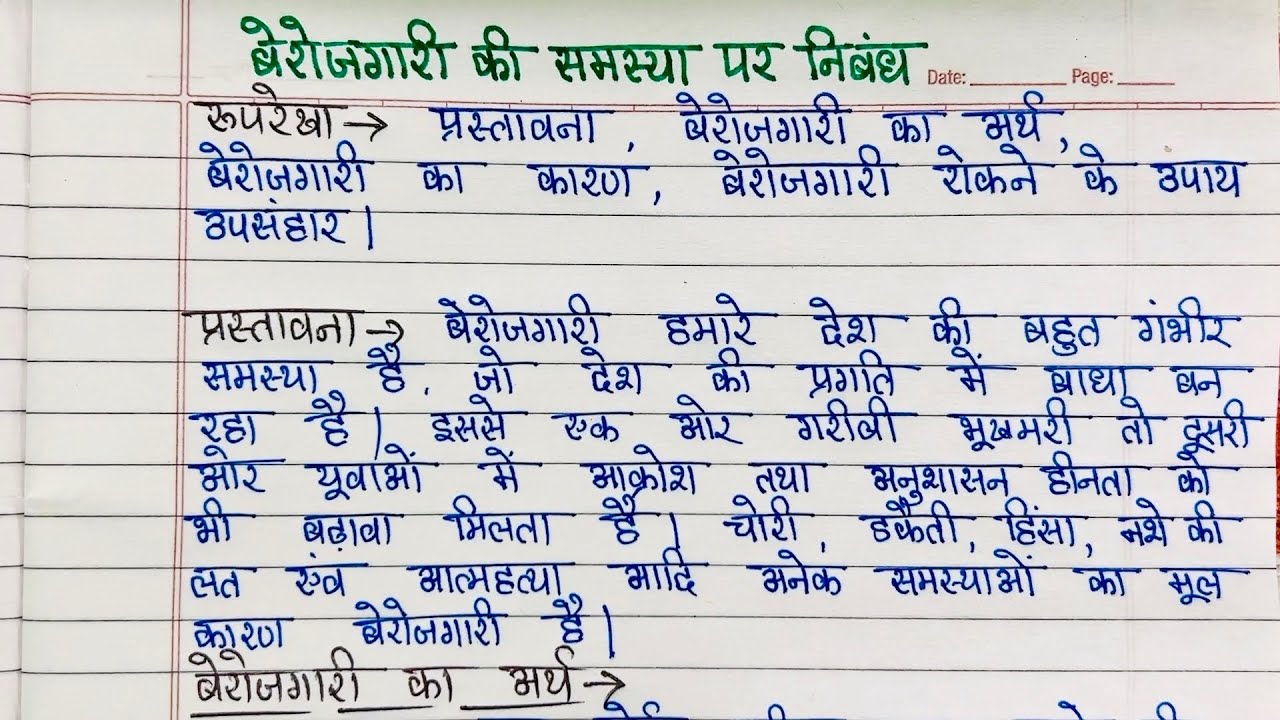 बेरोजगारी की समस्या पर निबंध Date: Page:
रूपरेखा → प्रस्तावना, बेरोजगारी का अर्थ,
बेरोजगारी का कारण, बेरोजगारी रोकने के उपाय
उपसंहार।
प्रस्तावना → बेरोजगारी हमारे देश की बहुत गंभीर
समस्या है, जो देश की प्रगति में बाधा बन
रहा है। इससे एक ओर गरीबी भूखमरी तो दूसरी
ओर यूवाओं में आक्रोश तथा अनुशासन हीनता को
भी बढ़ावा मिलता है। चोरी, डकैती, हिंसा, नशे की
लत एंव आत्महत्या आदि अनेक समस्याओं का मूल
कारण बेरोजगारी है।
बेरोजगारी का अर्थ →